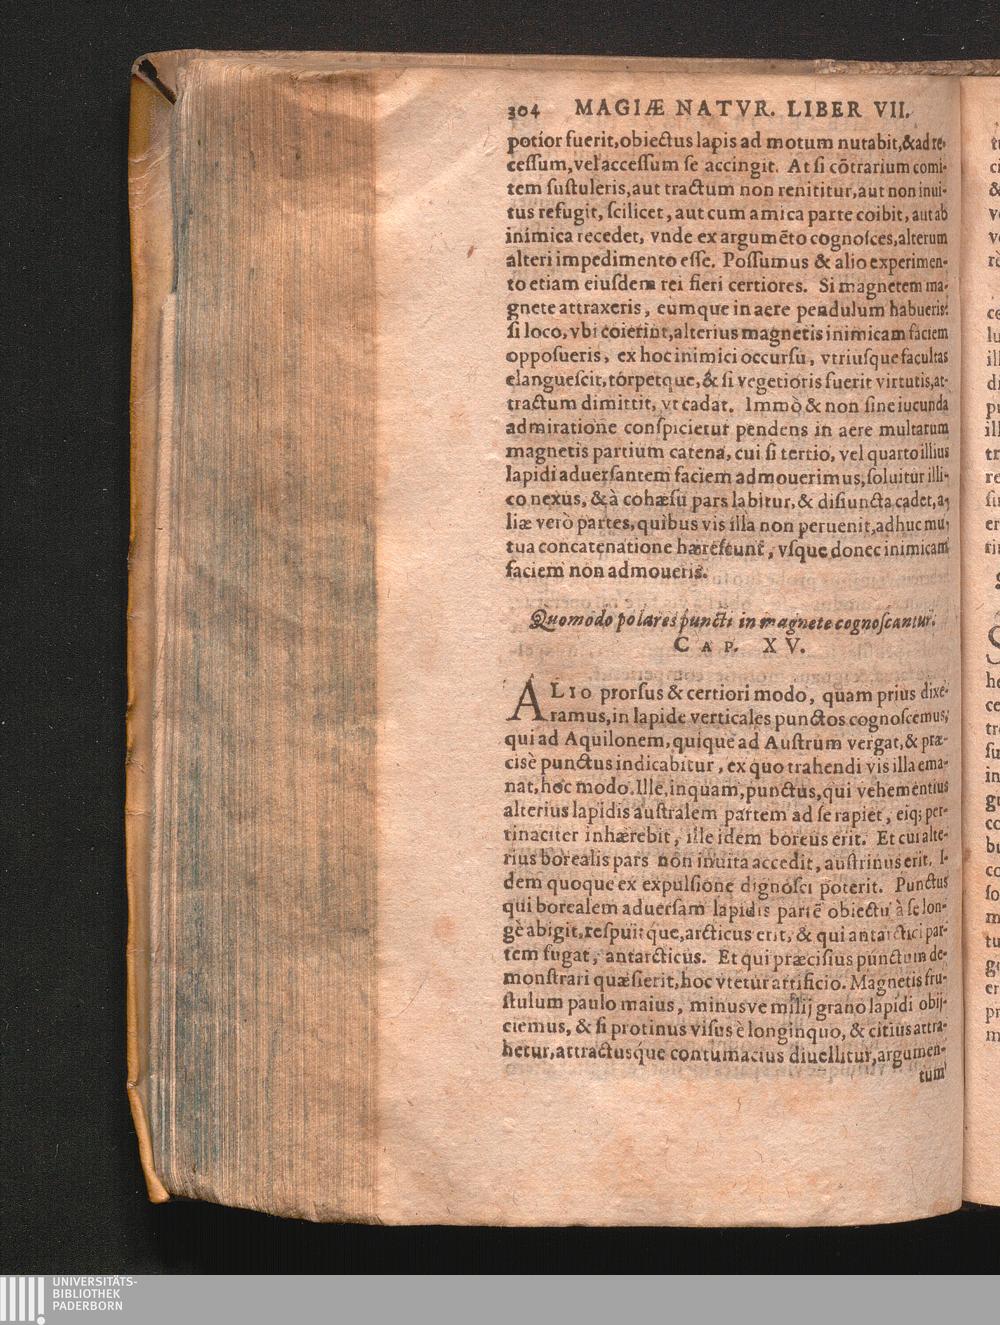 304 MAGIÆ NATVR. LIBER VII.
potior fuerit,obiectus lapis ad motum nutabit,&ad re-
cessum,vel accessum se accingit. At si cōtrarium comi-
tem sustuleris,aut tractum non renititur,aut non inui-
tus refugit, scilicet, aut cum amica parte coibit, aut ab
inimica recedet, vnde ex argumēto cognosces,alterum
alteri impedimento esse. Possumus & alio experimen-
to etiam eiusdem rei fieri certiores. Si magnetem ma-
gnete attraxeris, eumque in aere pendulum habueris:
si loco, vbi coierint,alterius magnetis inimicam faciem
opposueris, ex hoc inimici occursu, vtriusque facultas
elanguescit,torpetque,& si vegetioris fuerit virtutis,at-
tractum dimittit, vt cadat. Immò & non sine iucunda
admiratione conspicietur pendens in aere multarum
magnetis partium catena, cui si tertio, vel quarto illius
lapidi aduersantem faciem admouerimus,soluitur illi-
co nexus, & à cohæsu pars labitur, & disiuncta cadet,a-
liæ verò partes,quibus vis illa non peruenit,adhuc mu-
tua concatenatione hærescunt, vsque donec inimicam
faciem non admoueris.
Quomodo polares puncti in magnete cognoscantur.
CAP. XV.
ALIO prorsus & certiori modo, quam prius dixe-
ramus,in lapide verticales punctos cognoscemus,
qui ad Aquilonem,quique ad Austrum vergat,& præ-
cisè punctus indicabitur, ex quo trahendi vis illa ema-
nat,hoc modo.Ille,inquam,punctus,qui vehementius
alterius lapidis australem partem ad se rapiet, eiq; per-
tinaciter inhærebit, ille idem boreus erit. Et cui alte-
rius borealis pars non inuita accedit, austrinus erit. I-
dem quoque ex expulsione dignosci poterit. Punctus
qui borealem aduersam lapidis partē obiectu à se lon-
gè abigit,respuitque,arcticus erit, & qui antarctici par-
tem fugat, antarcticus. Et qui præcisius punctum de-
monstrari quæsierit,hoc vtetur artificio. Magnetis fru-
stulum paulo maius, minusve milij grano lapidi obij-
ciemus, & si protinus visus è longinquo, & citius attra-
hetur,attractusque contumacius diuellitur,argumen-
tum
UNIVERSITÄTS-
BIBLIOTHEK
PADERBORN